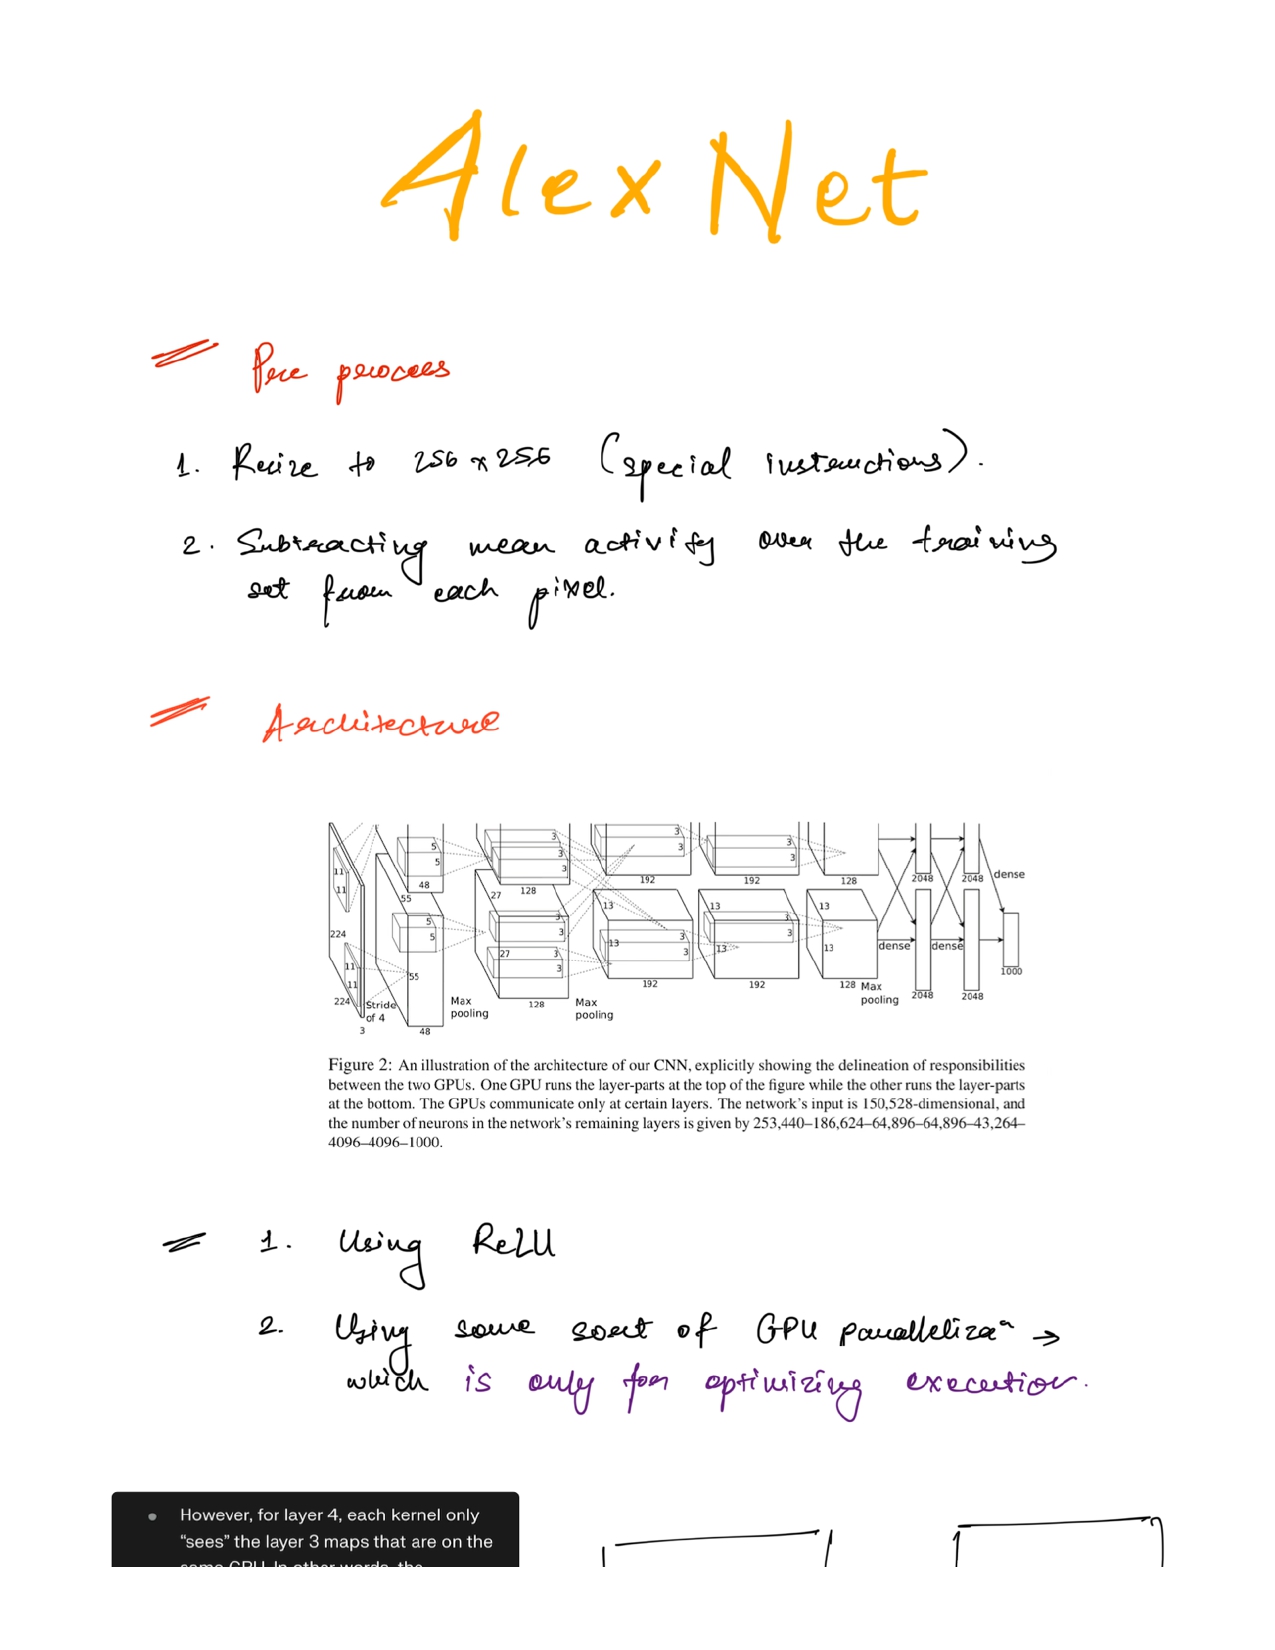 Alex Net
Pre process
1. Resize to 256 x 256 (special instructions).
2. Subtracting mean activity over the training
set from each pixel.
Architecture
11
11
224
11
11
224
3
Stride
of 4
5
5
48
55
5
5
55
48
Max
pooling
3
3
3
27
128
3
3
27
3
3
128
Max
pooling
3
3
192
13
13
3
3
192
3
3
192
13
3
3
13
192
128
13
13
128
Max
pooling
2048
2048
dense
dense
dense
2048
2048
1000
Figure 2: An illustration of the architecture of our CNN, explicitly showing the delineation of responsibilities
between the two GPUs. One GPU runs the layer-parts at the top of the figure while the other runs the layer-parts
at the bottom. The GPUs communicate only at certain layers. The network's input is 150,528-dimensional, and
the number of neurons in the network's remaining layers is given by 253,440–186,624–64,896–64,896–43,264–
4096–4096–1000.
1. Using ReLU
2. Using some sort of GPU parallelizaⁿ →
which is only for optimizing execution.
• However, for layer 4, each kernel only
“sees” the layer 3 maps that are on the
same GPU. In other words, the